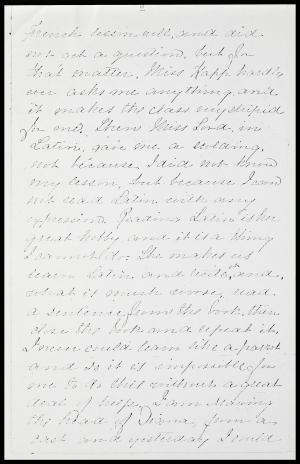 French lesson well, and did
not ask a question, but for
that matter, Miss Kapp hardly
ever asks me anything and
it makes the class very stupid
for me. Then Miss Lord, in
Latin, gave me a scolding,
not because I did not know
my lesson, but because I can
not read Latin with any
expression. Reading Latin is her
great hobby and it is a thing
I cannot do. She makes us
learn Latin and write it, and,
what is much worse, read
a sentence from the book, then
close the book and repeat it.
I never could learn like a parrot
and so it is impossible for
me to do this without a great
deal of help. I am drawing
the head of Diana, from a
cast and yesterday I